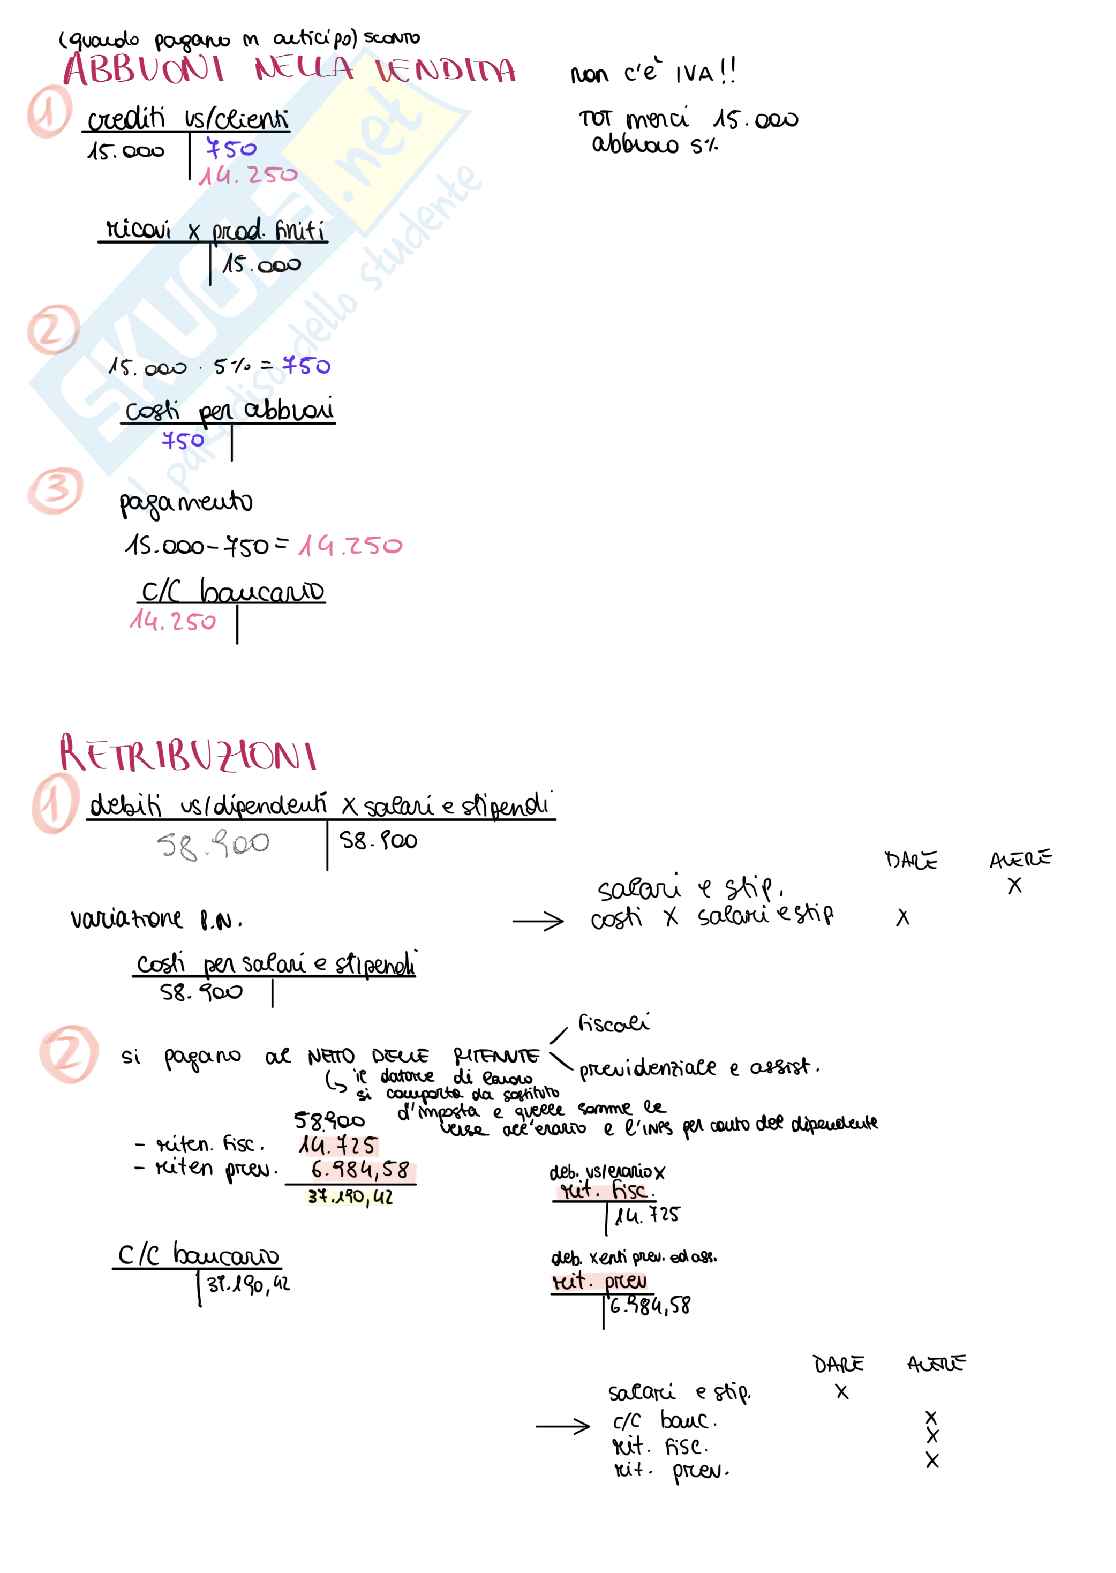 (quando pagano in anticipo) SCONTO
ABBUONI NELLA VENDITA
non c'è IVA!!
TOT merci 15.000
abbuono 5%
1
crediti vs/clienti
15.000 750
14.250
ricavi x prod. finiti
15.000
2
15.000 · 5% = 750
costi per abbuoni
750
3
pagamento
15.000 - 750 = 14.250
c/c bancario
14.250
RETRIBUZIONI
1
debiti vs/dipendenti x salari e stipendi
58.900 58.900
DARE AVERE
salari e stip. X
variazione P.N. → costi x salari e stip X
costi per salari e stipendi
58.900
2
si pagano al NETTO DELLE RITENUTE
fiscali
previdenziale e assist.
↳ il datore di lavoro
si comporta da sostituto
d'imposta e quelle somme le
versa all'erario e l'INPS per conto del dipendente
58.900
- riten. fisc. 14.725
- riten prev. 6.984,58
37.190,42
deb. vs/erario x
rit. fisc.
14.725
c/c bancario
37.190,42
deb. x enti prev. ed ass.
rit. prev
6.984,58
DARE AVERE
salari e stip. X
→ c/c banc. X
rit. fisc. X
rit. prev. X
SKUOLA.net
il paradiso dello studente